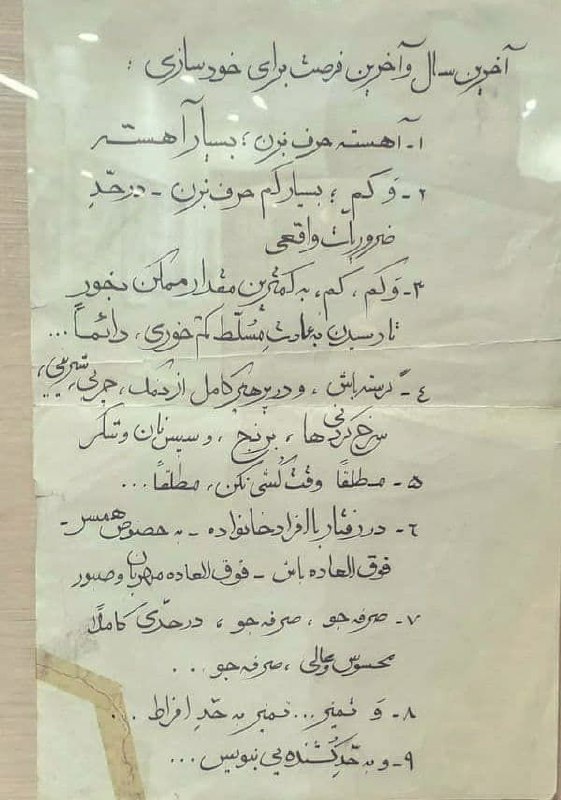 آخرین سال و آخرین فرصت برای خودسازی :
۱- آهسته حرف بزن ؛ بسیار آهسته
۲- وَ کم ؛ بسیار کم حرف بزن - در حدِّ
ضروریات واقعی
۳- وَ کم ، کم ، به کمترین مقدار ممکن بخور
تا رسیدن به عادتِ مُسلّطِ کم خوری ، دائماً ...
٤- گرسنه باش ، و در پرهیز کامل از نمک ، چربی ، شیرینی ،
سرخ کردنی ها ، برنج ، و سپس نان و شکر
۵- مطلقاً وقت کُشی نکن ، مطلقاً ...
٦- در رفتار با افراد خانواده - به خصوص همسر -
فوق العاده باش - فوق العاده مهربان و صبور
۷- صرفه جو ، صرفه جو ، در حدّی کاملاً
محسوس و عالی ، صرفه جو ...
۸- وَ تمیز ... تمیز به حدِ افراط ...
۹- و به حدِّ کُشنده یی بنویس ...